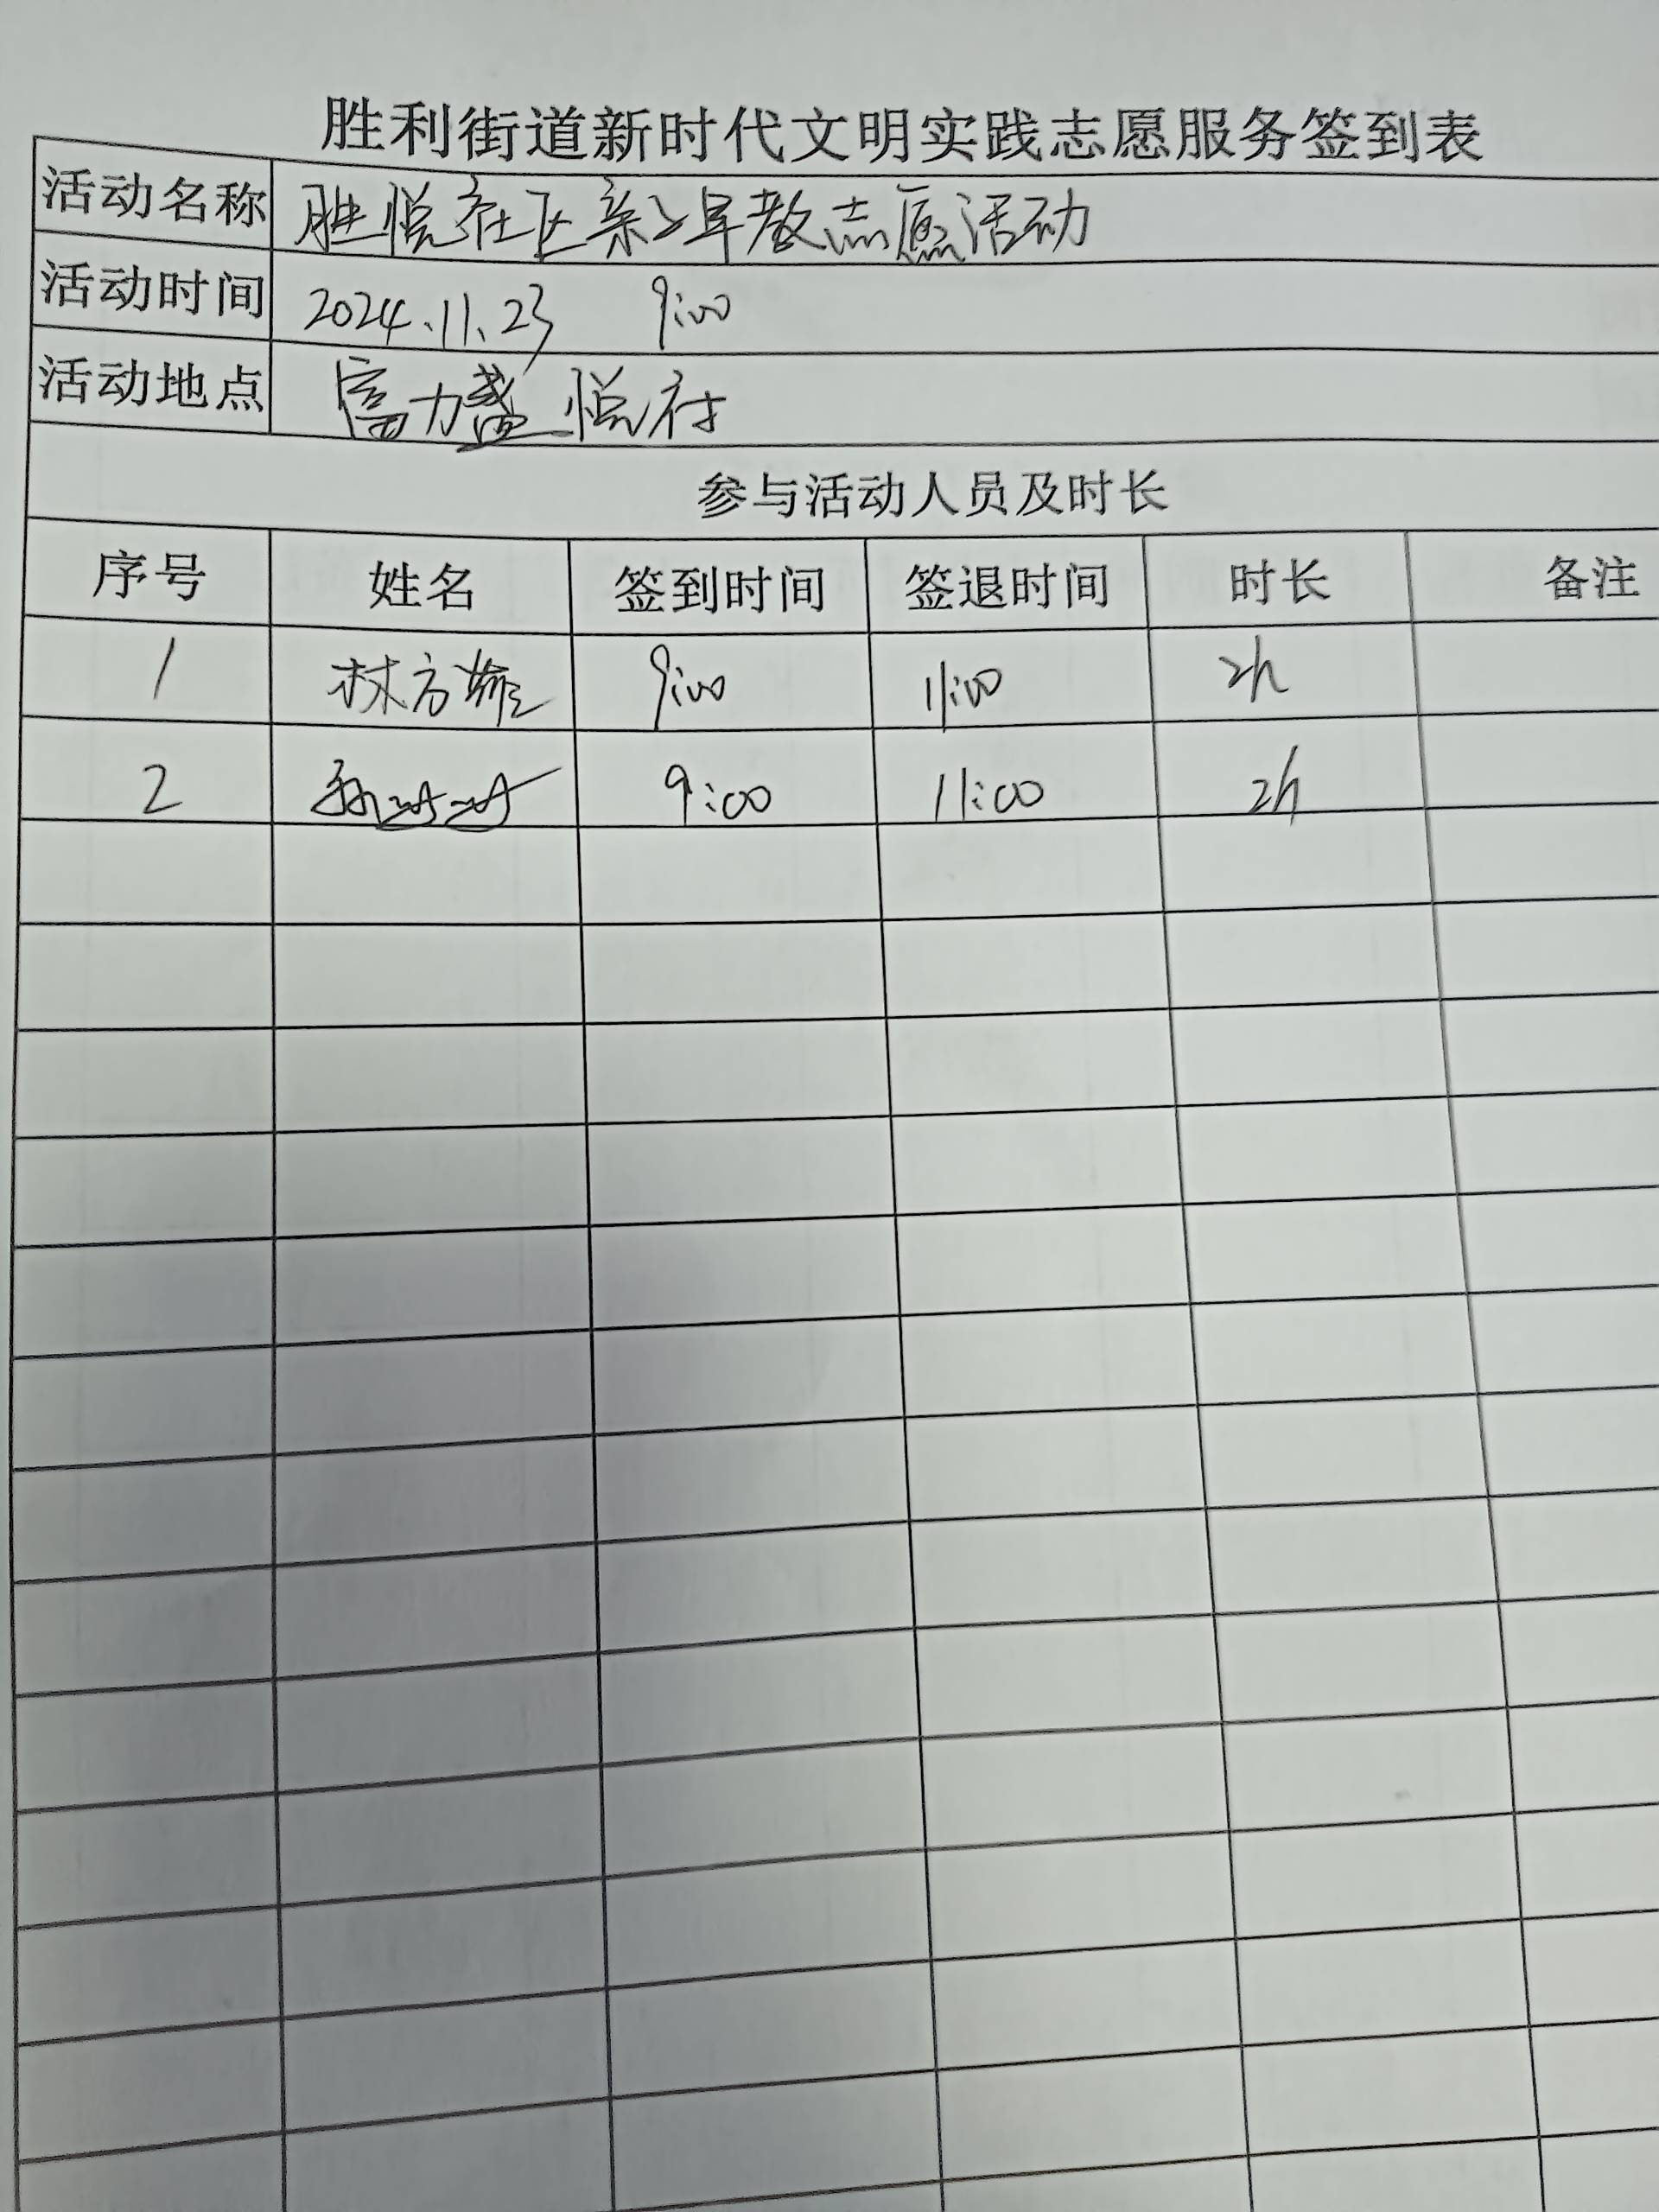 胜利街道新时代文明实践志愿服务签到表
活动名称 胜悦社区亲子早教志愿活动
活动时间 2024.11.23 9:00
活动地点 富力盛悦府
参与活动人员及时长
序号 姓名 签到时间 签退时间 时长 备注
1 林方 9:00 11:00 2h
2 9:00 11:00 2h